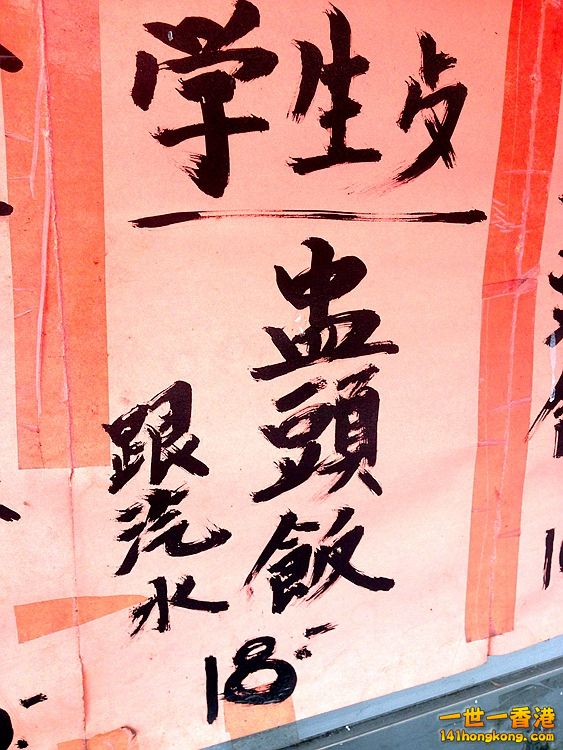 学生歺
盅頭飯
跟汽水
18.-
一世一香港
141hongkong.com